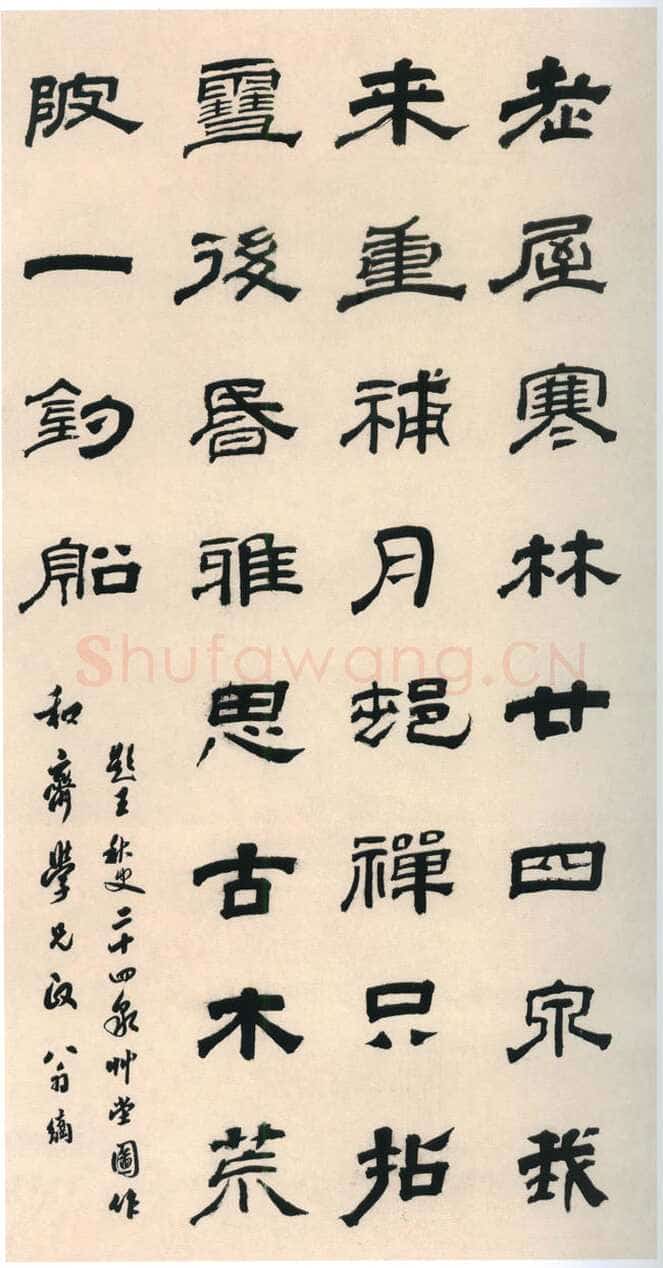 老屋寒林廿四泉我
来重補月禪只拈
雪後昏雅思古木荒
陂一釣船
題王秋史二十四泉艸堂圖作
和齋學兄政 八翁
Shufawang.CN